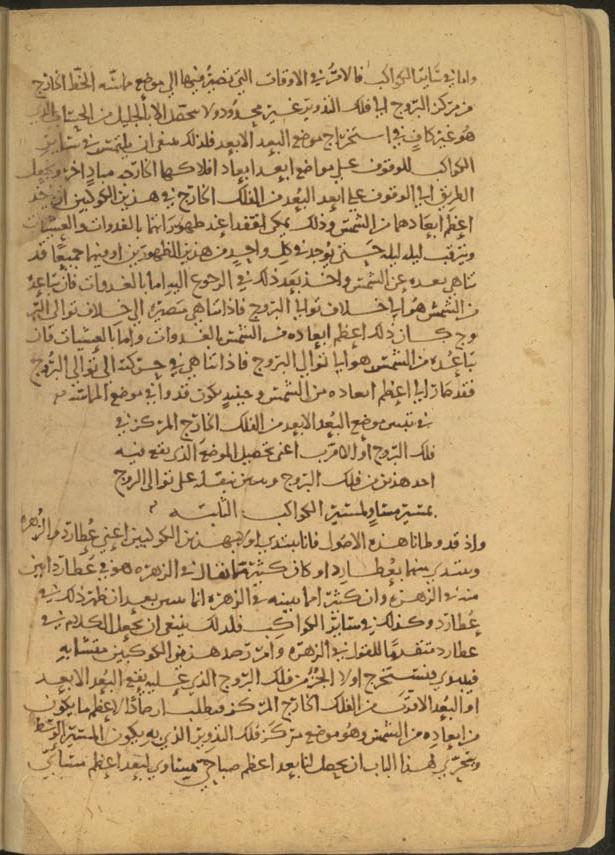 واما في سائر الكواكب فالامر في الاوقات التي تصير فيها الى موضع مماسة الخط الخارج
من مركز البروج لها فلك التدوير غير محدود ولا متحصل الا بالجليل من الحساب الذي
هو غير كاف في استخراج موضع البعد الابعد فلذلك ينبغي ان يلتمس في سائر
الكواكب للوقوف على مواضع ابعد ابعاد افلاكها الخارجة مباد اخر ونجعل
الطريق الى الوقوف على ابعد البعد من الفلك الخارج في هذين الكوكبين ان نجد
اعظم ابعادها من الشمس وذلك يمكن ان تفقد عند ظهوراتها بالغدوات والعشيات
ونترقب ليلة ليلة حتى يوجد في كل واحد من هذين الظهورين او فيهما جميعا قد
تناهى بعده عن الشمس واخذ بعد ذلك في الرجوع اليها اما بالغدوات فان تباعده
من الشمس هو الى خلاف توالي البروج فاذا تناهى مصيره الى خلاف توالي البر
وج كان ذلك اعظم ابعاده من الشمس بالغدوات واما بالعشيات فان
تباعده من الشمس هو الى توالي البروج فاذا تناهى في حركته الى توالي البروج
فقد صار الى اعظم ابعاده من الشمس وحينئذ يكون قد وافى موضع المماسة
في تبيين موضع البعد الابعد من الفلك الخارج المركز في
فلك البروج او الاقرب اعني تحصيل الموضع الذي يقع فيه
احد هذين من فلك البروج وتبيين تنقله على توالي البروج
بمسير مساو لمسير الكواكب الثابتة
واذ قد وطانا هذه الاصول فانا نبتدي اولا بهذين الكوكبين اعني عطارد والزهرة
ونبتدي منهما بعطارد اذ كان كثير مما يقال في الزهرة هو في عطارد ابين
منه في الزهرة وان كثيرا مما نبينه في الزهرة انما يتبين بعد ان ظهر ذلك في
عطارد وكذلك في سائر الكواكب فلذلك ينبغي ان يجعل الكلام في
عطارد متقدما للقول في الزهرة وامر رصد هذين الكوكبين متشابه
فنستخرج اولا الجزء من فلك البروج الذي عليه يقع البعد الابعد
او البعد الاقرب من الفلك الخارج المركز فطلب ارصادا لاعظم ما يكون
من ابعاده من الشمس وهو موضع مركز فلك التدوير الذي به يكون المسير الوسط
ونتحرى لهذا الباب ان يحصل لنا بعد اعظم صباحي مساوي لبعد اعظم مسائي